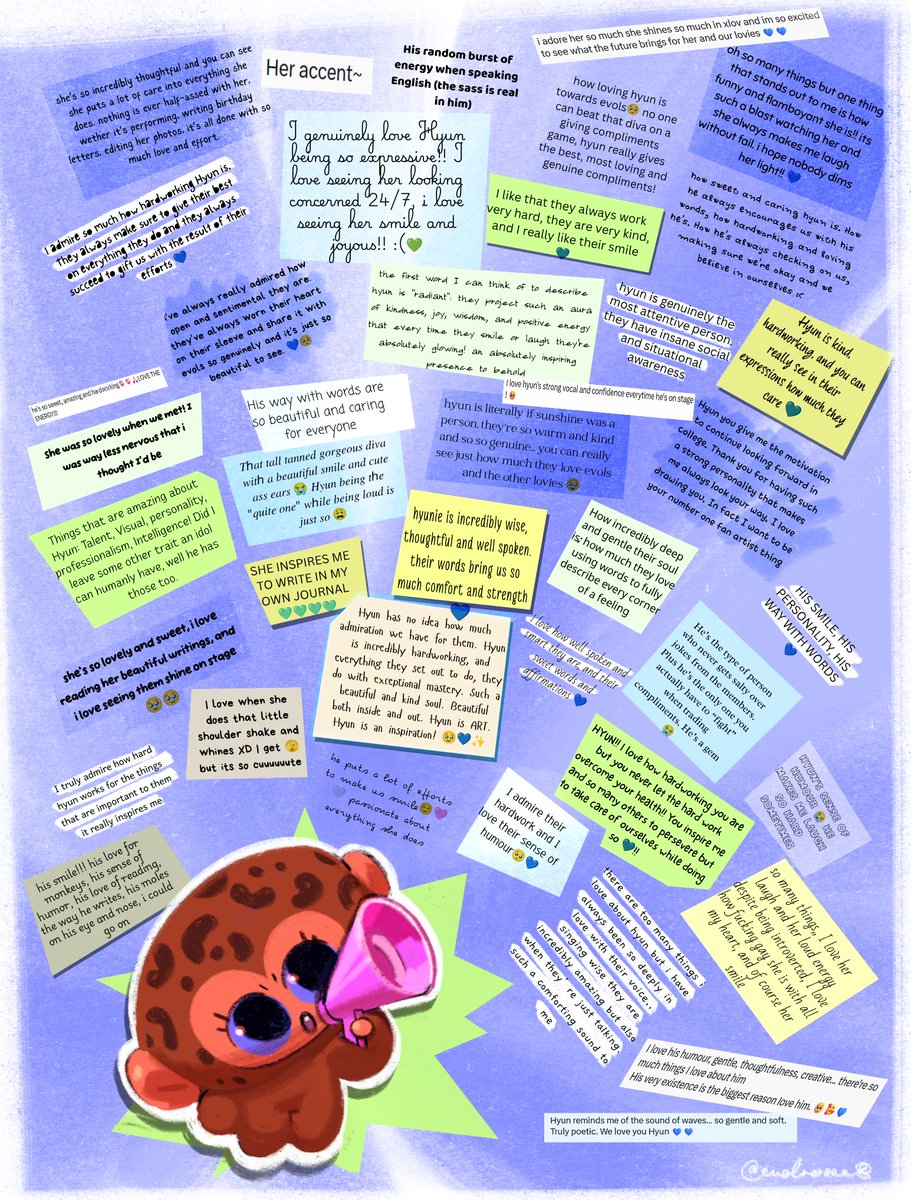 she's so incredibly thoughtful and you can see
she puts a lot of care into everything she
does. nothing is ever half-assed with her,
wether it's performing. writing birthday
letters. editing her photos. it's all done with so
much love and effort.
Her accent~
His random burst of
energy when speaking
English (the sass is real
in him)
i adore her so much she shines so much in xlov and im so excited
to see what the future brings for her and our lovies 💙 💙
how loving hyun is
towards evols🥹 no one
can beat that diva on a
giving compliments
game, hyun really gives
the best, most loving and
genuine compliments!
oh so many things but one thing
that stands out to me is how
funny and flamboyant she is!! its
such a blast watching her and
she always makes me laugh
without fail. i hope nobody dims
her light!! 💙
I genuinely love Hyun
being so expressive!! I
love seeing her looking
concerned 24/7, i love
seeing her smile and
joyous!! :(💚
I admire so much how hardworking Hyun is.
They always make sure to give their best
on everything they do and they always
succeed to gift us with the result of their
efforts 💙
I like that they always work
very hard, they are very kind,
and I really like their smile
💚
how sweet and caring hyun is. How
he always encourages us with his
words, how hardworking and loving
he's. How he's always checking on us,
making sure we're okay and we
believe in ourselves :<
i've always really admired how
open and sentimental they are
they've always worn their heart
on their sleeve and share it with
evols so genuinely and it's just so
beautiful to see. 💙🥹
the first word I can think of to describe
hyun is "radiant": they project such an aura
of kindness, joy, wisdom, and positive energy
that every time they smile or laugh they're
absolutely glowing! an absolutely inspiring
presence to behold
hyun is genuinely the
most attentive person.
they have insane social
and situational
awareness
Hyun is kind,
hardworking, and you can
really see in their
expressions how much they
care 💚
he's so sweet, amazing and hardworking🫰🫰🙏🏻 LOVE THE
ENERGY!!!
His way with words are
so beautiful and caring
for everyone
I love hyun's strong vocal and confidence everytime he's on stage
! 🥹
She was so lovely when we met! I
was way less nervous that i
thought I'd be
hyun is literally if sunshine was a
person. they're so warm and kind
and so so genuine... you can really
see just how much they love evols
and the other lovies 🥹
Hyun you give me the motivation
to continue looking forward in
college. Thank you for having such
a strong personality that makes
me always look your way. I love
drawing you. In fact I want to be
your number one fan artist thing
That tall tanned gorgeous diva
with a beautiful smile and cute
ass ears 😭 Hyun being the
"quite one" while being loud is
just so 😩
Things that are amazing about
Hyun: Talent, Visual, personality,
professionalism, Intelligence! Did I
leave some other trait an idol
can humanly have, well he has
those too.
hyunie is incredibly wise,
thoughtful and well spoken.
their words bring us so
much comfort and strength
💙
How incredibly deep
and gentle their soul
is- how much they love
using words to fully
describe every corner
of a feeling
SHE INSPIRES ME
TO WRITE IN MY
OWN JOURNAL
💚💚💚💚
HIS SMILE, HIS
PERSONALITY, HIS
WAY WITH WORDS
💙
she's so lovely and sweet, i love
reading her beautiful writings, and
i love seeing them shine on stage
🥹🥹
Hyun has no idea how much
admiration we have for them. Hyun
is incredibly hardworking, and
everything they set out to do, they
do with exceptional mastery. Such a
beautiful and kind soul. Beautiful
both inside and out. Hyun is ART.
Hyun is an inspiration! 🥹💙✨
I love how well spoken and
smart they are, and their
sweet words and
affirmations 💙
He's the type of person
who never gets salty over
jokes from the members.
Plus he's the only one you
actually have to "fight"
when trading
compliments. He's a gem
😭
I love when she
does that little
shoulder shake and
whines XD I get 🫣
but its so cuuuuute
I truly admire how hard
hyun works for the things
that are important to them
it really inspires me
he puts a lot of efforts
to make us smile☺️💜
💜 passionate about
everything she does
I admire their
hardwork and I
love their sense of
humour🥹💙
HYUN!! I love how hardworking you are
but you never let the hard work
overcome your health!! You inspire me
and so many others to persevere but
to take care of ourselves while doing
so 💚!!
HYUN'S SENSE OF
HUMOUR 😭 HE
MAKES ME LAUGH
SO HARD
SOMETIMES
his smile!!! his love for
monkeys, his sense of
humor, his love of reading,
the way he writes, his moles
on his eye and nose, i could
go on
there are too many things i
love about hyun but i have
always been so deeply in
love with their voice..
singing wise they are
incredibly amazing but also
when they're just talking,
such a comforting sound to
me
so many things, I love her
laugh and her loud energy
despite being introverted, I love
how fucking gay she is with all
my heart, and of course her
smile
I love his humour, gentle, thoughtfulness, creative... there're so
much things I love about him
His very existence is the biggest reason love him. 🥹🥰💙
Hyun reminds me of the sound of waves... so gentle and soft.
Truly poetic. We love you Hyun 💙 💙